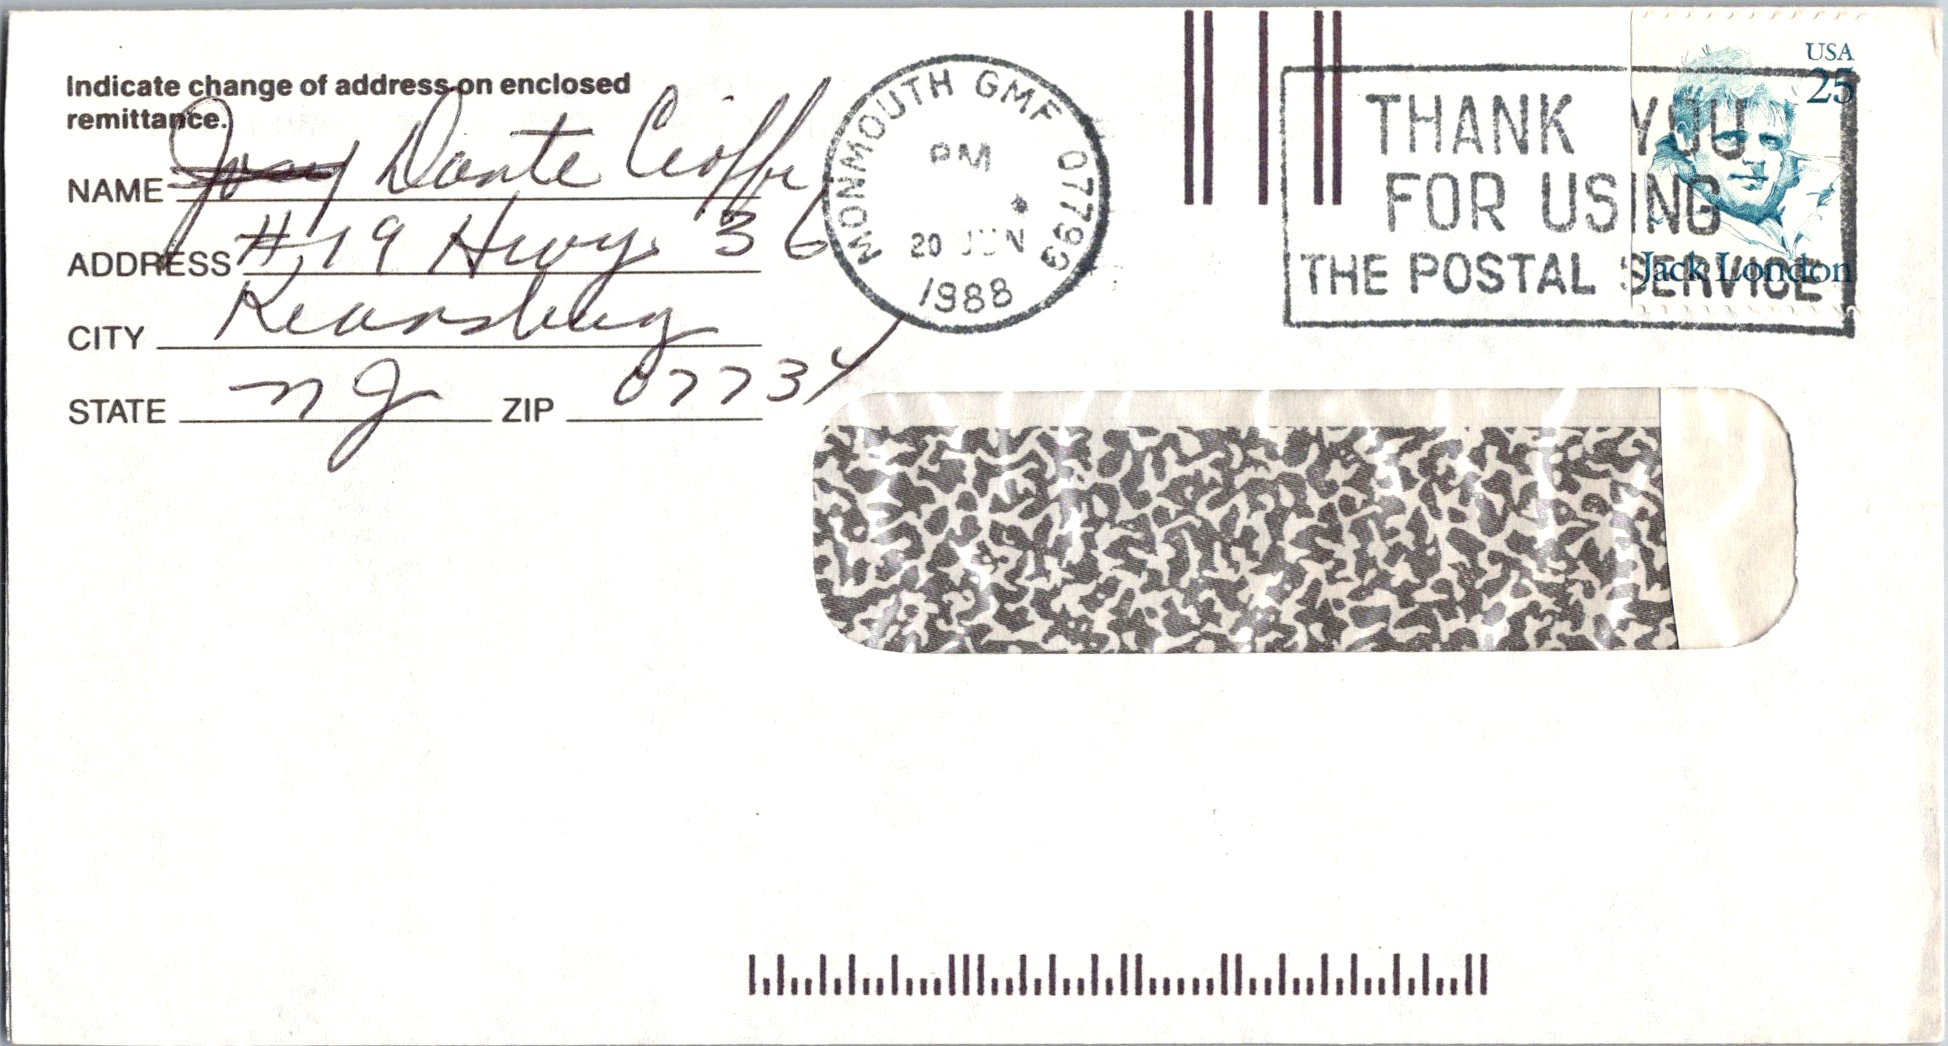 Indicate change of address on enclosed
remittance.
NAME Dante Cioffi
ADDRESS #19 Hwy 36
CITY Keansburg
STATE NJ ZIP 07734
MONMOUTH GMF 07799
PM
20 JUN
1988
THANK YOU
FOR USING
THE POSTAL SERVICE
USA
25
Jack London